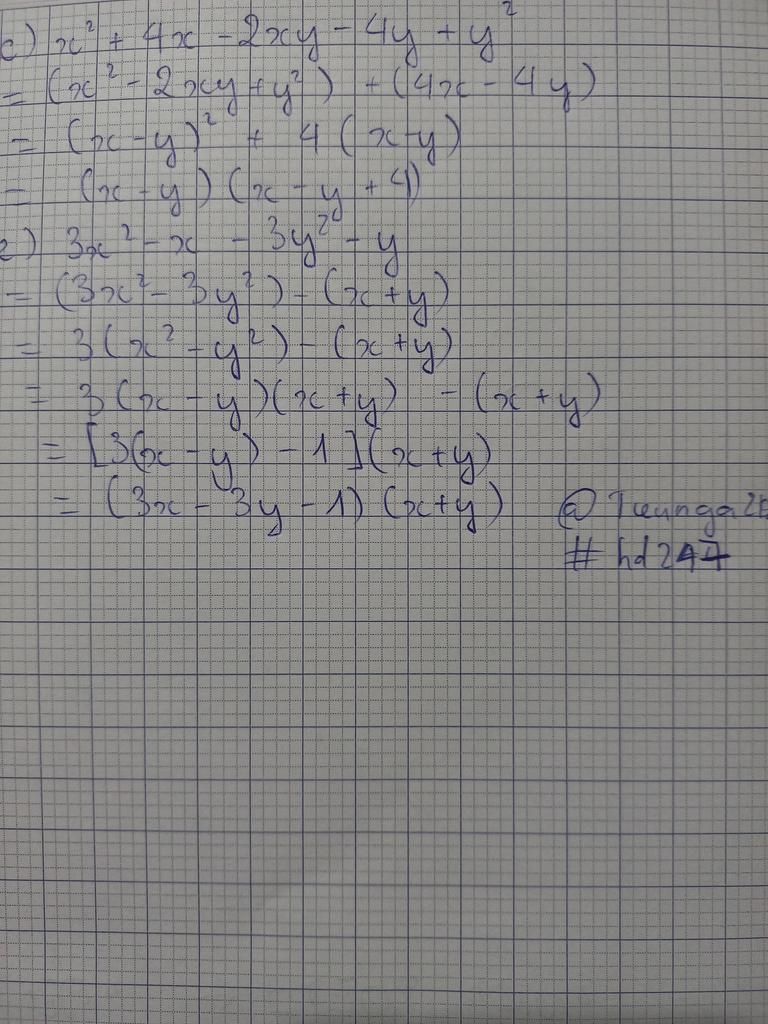 c) x² + 4x - 2xy - 4y + y²
= (x² - 2xy + y²) + (4x - 4y)
= (x - y)² + 4(x - y)
= (x - y)(x - y + 4)
e) 3x² - x - 3y² - y
= (3x² - 3y²) - (x + y)
= 3(x² - y²) - (x + y)
= 3(x - y)(x + y) - (x + y)
= [3(x - y) - 1](x + y)
= (3x - 3y - 1)(x + y)
# hd247